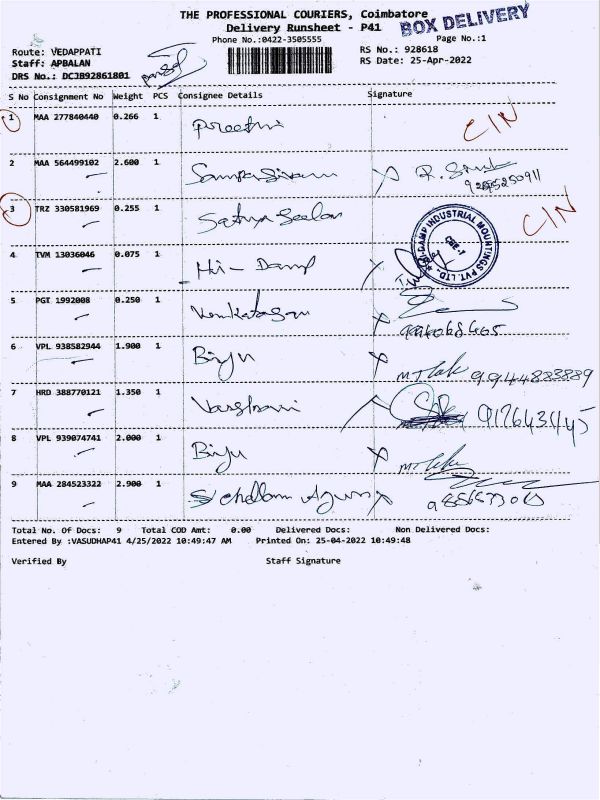 THE PROFESSIONAL COURIERS, Coimbatore
BOX DELIVERY
Delivery Runsheet - P41
Phone No.:0422-3505555
Page No.:1
Route: VEDAPPATI
RS No.: 928618
Staff: APBALAN
RS Date: 25-Apr-2022
DRS No.: DCJB92861801
S No Consignment No Weight PCS Consignee Details Signature
1 MAA 277840440 0.266 1 Preethi CIN
2 MAA 564499102 2.600 1
9245250911
3 TRZ 330581969 0.255 1 Sathya Seelan CIN
HI-DAMP INDUSTRIAL MOUNTINGS PVT. LTD. CBE-1
4 TVM 13036046 0.075 1 Hi-Damp
5 PGT 1992008 0.250 1 Venkatesan
6 VPL 938582944 1.900 1 Biju
9944883889
7 HRD 388770121 1.350 1 Varshani
8 VPL 939074741 2.000 1 Biju
9 MAA 284523322 2.900 1
Total No. Of Docs: 9 Total COD Amt: 0.00 Delivered Docs: Non Delivered Docs:
Entered By :VASUDHAP41 4/25/2022 10:49:47 AM Printed On: 25-04-2022 10:49:48
Verified By Staff Signature